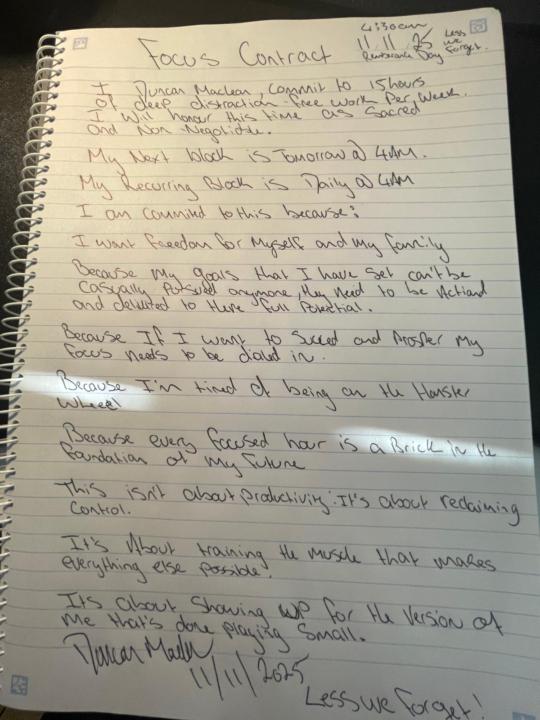 4:30am
11/11/25 Less
we
Remembrance Day Forget.
Focus Contract
I Duncan Maclean, Commit to 15 hours
of deep distraction-free work per week.
I will honour this time as Sacred
and Non Negotiable.
My Next block is Tomorrow @ 4AM.
My Recurring Block is Daily @ 4AM
I am commited to this because:
I want freedom for Myself and my family
Because My goals that I have set can't be
Casually Pursued anymore, they need to be Actioned
and delivated to there full Potential.
Because If I want to Succed and Prosper My
focus needs to be dialed in.
Because I'm tired of being on the Hamster
wheel
Because every focused hour is a Brick in the
foundation of my future
This isn't about productivity: It's about reclaining
Control.
It's About training the muscle that makes
everything else possible.
It's about Showing UP for the Version of
me that's done playing Small.
Duncan Maclean
11/11/2025
Less we Forget!